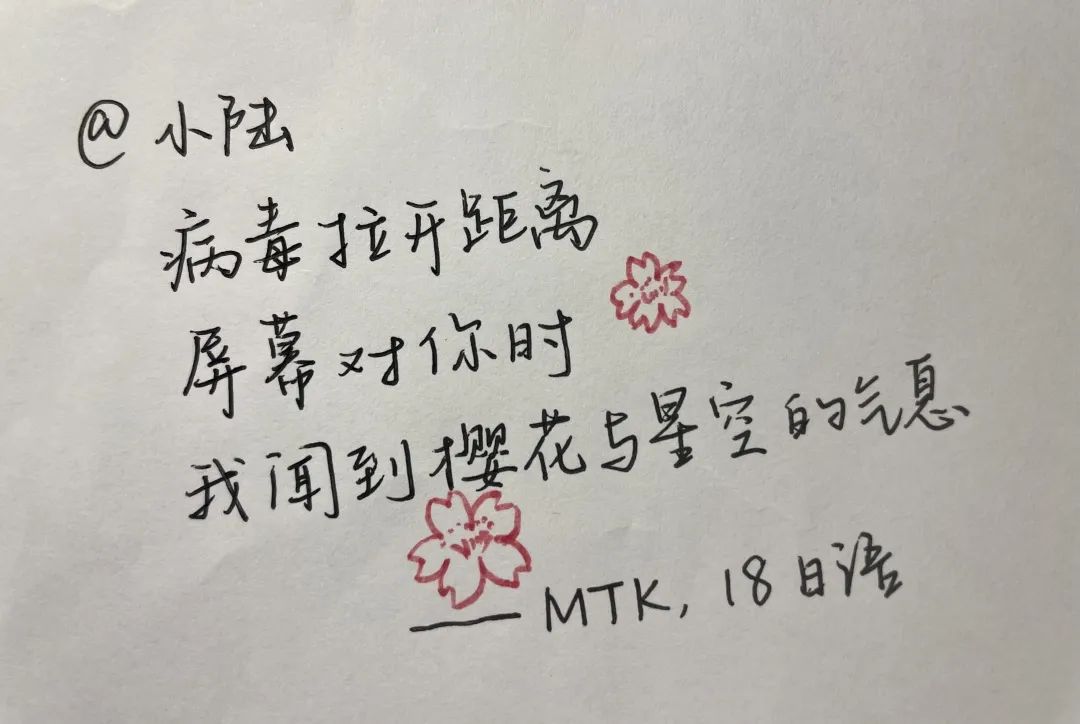 @小陆
病毒拉开距离
屏幕对你时
我闻到樱花与星空的气息
——MTK, 18日语